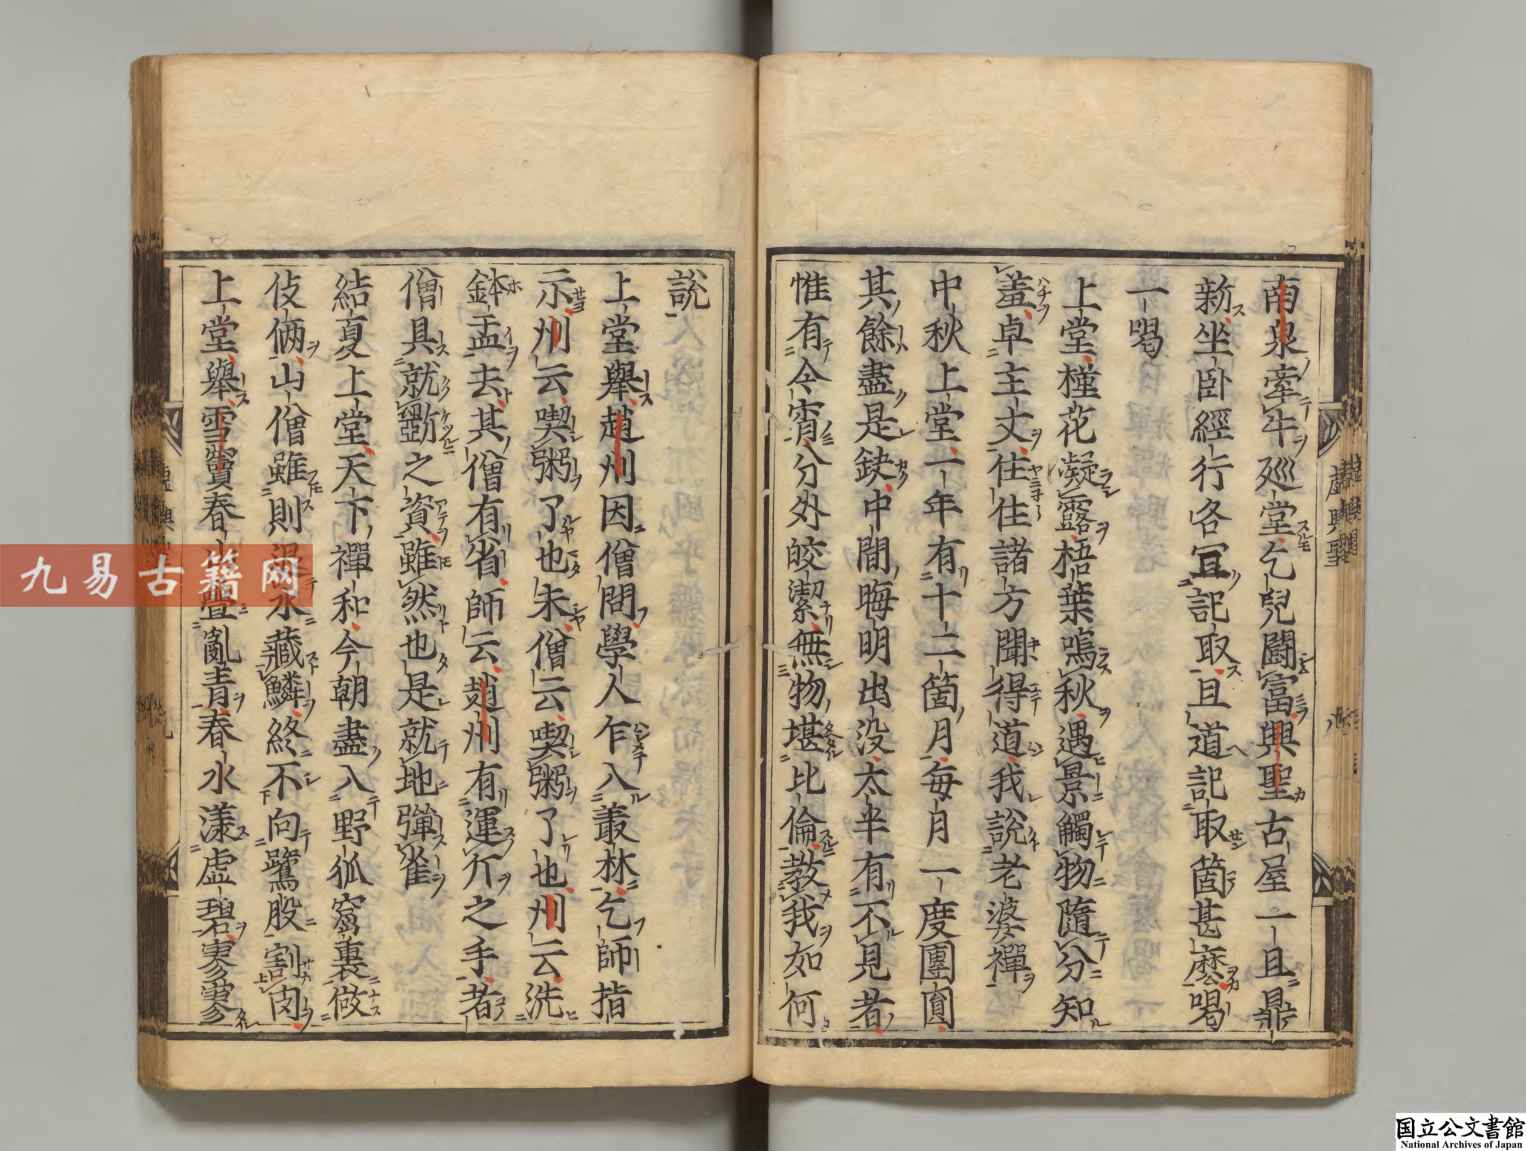 南泉牽牛廵堂乞兒鬪富興聖古屋一且鼎
新坐卧經行各冝記取且道記取箇甚麽喝
一喝
上堂槿花凝露梧葉鳴秋遇景觸物隨分知
羞卓主丈住住諸方聞得道我說老婆禪
中秋上堂一年有十二箇月每月一度團圎
其餘盡是缺中間晦明出没太半有不見者
惟有今宵分外皎潔無物堪比倫教我如何
說
上堂舉趙州因僧問學人乍入叢林乞師指
示州云喫粥了也未僧云喫粥了也州云洗
鉢盂去其僧有省師云趙州有運斤之手者
僧具就斵之資雖然也是就地彈雀
結夏上堂天下禪和今朝盡入野狐窟裏做
伎倆山僧雖則水藏鱗終不向鷺股割肉
上堂舉雪竇春山疊亂青春水漾虚碧寥寥
興聖
九易古籍网
国立公文書館
National Archives of Japan